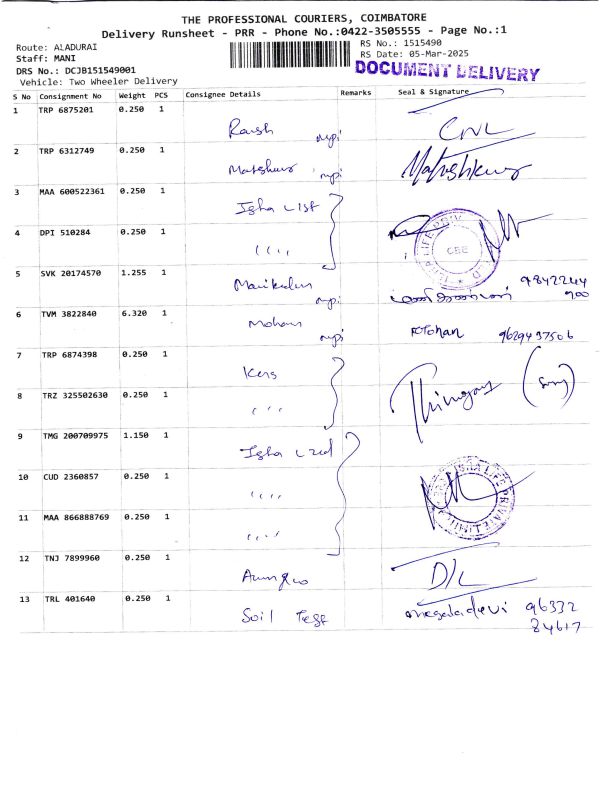 THE PROFESSIONAL COURIERS, COIMBATORE
Delivery Runsheet - PRR - Phone No.:0422-3505555 - Page No.:1
Route: ALADURAI
Staff: MANI
DRS No.: DCJB151549001
Vehicle: Two Wheeler Delivery
RS No.: 1515490
RS Date: 05-Mar-2025
DOCUMENT DELIVERY
S No Consignment No Weight PCS Consignee Details Remarks Seal & Signature
1 TRP 6875201 0.250 1
CNL
2 TRP 6312749 0.250 1
3 MAA 600522361 0.250 1
Isha
4 DPI 510284 0.250 1
CBE
5 SVK 20174570 1.255 1
9842244
900
6 TVM 3822840 6.320 1
Mohan Mohan 9629437506
7 TRP 6874398 0.250 1
8 TRZ 325502630 0.250 1
9 TMG 200709975 1.150 1
Isha
10 CUD 2360857 0.250 1
11 MAA 866888769 0.250 1
12 TNJ 7899960 0.250 1
D/L
13 TRL 401640 0.250 1
Soil Test megaladevi 96332
84617